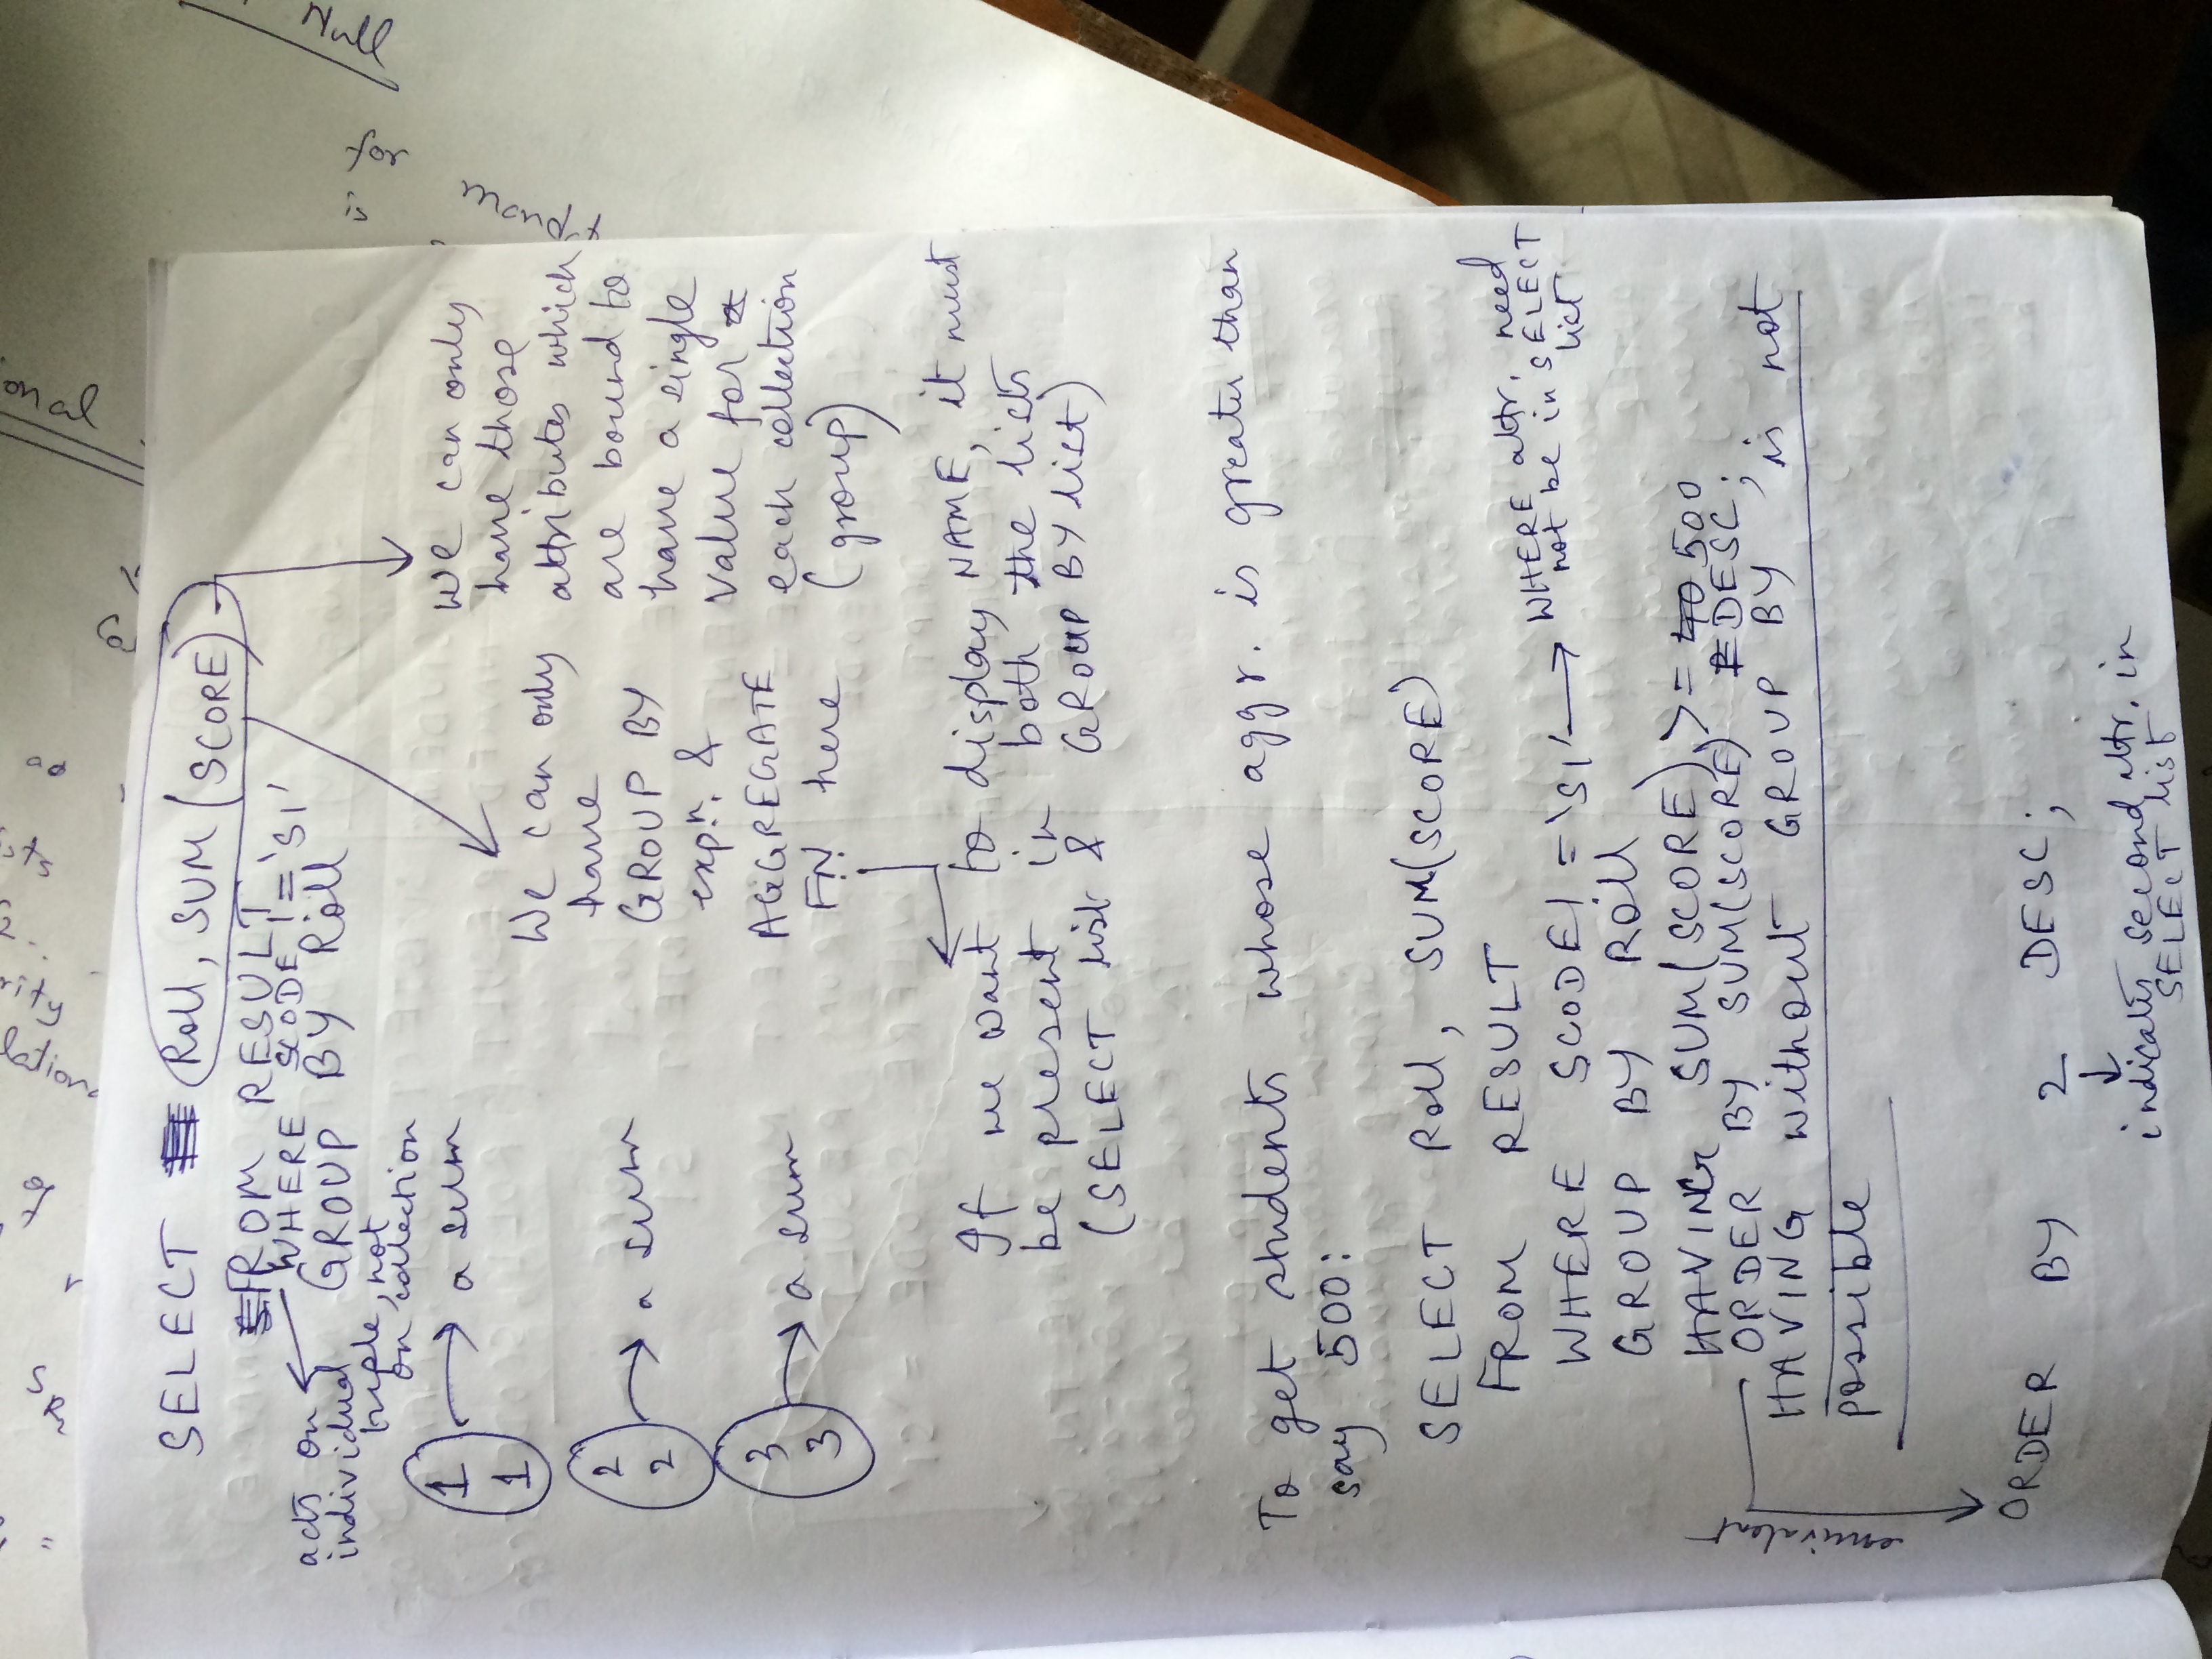 SELECT Roll, SUM(SCORE)
FROM RESULT
WHERE SCODE != 'S1'
GROUP BY Roll
acts on
individual
tuple, not
on collection
1
1
a sum
2
2
a sum
3
3
a sum
We can only
have
GROUP BY
expn. &
AGGREGATE
FN. here
We can only
have those
attributes which
are bound to
have a single
value for
each collection
(group)
If we want to display NAME, it must
be present in both the lists
(SELECT list & GROUP BY list)
To get students whose aggr. is greater than
say 500:
SELECT Roll, SUM(SCORE)
FROM RESULT
WHERE SCODE != 'S1'
WHERE attr. need
not be in SELECT
list
GROUP BY Roll
HAVING SUM(SCORE) >= 500
ORDER BY SUM(SCORE) DESC;
HAVING without GROUP BY is not
possible
equivalent
ORDER BY 2 DESC;
indicates second attr. in
SELECT list
onal
Null
for
is